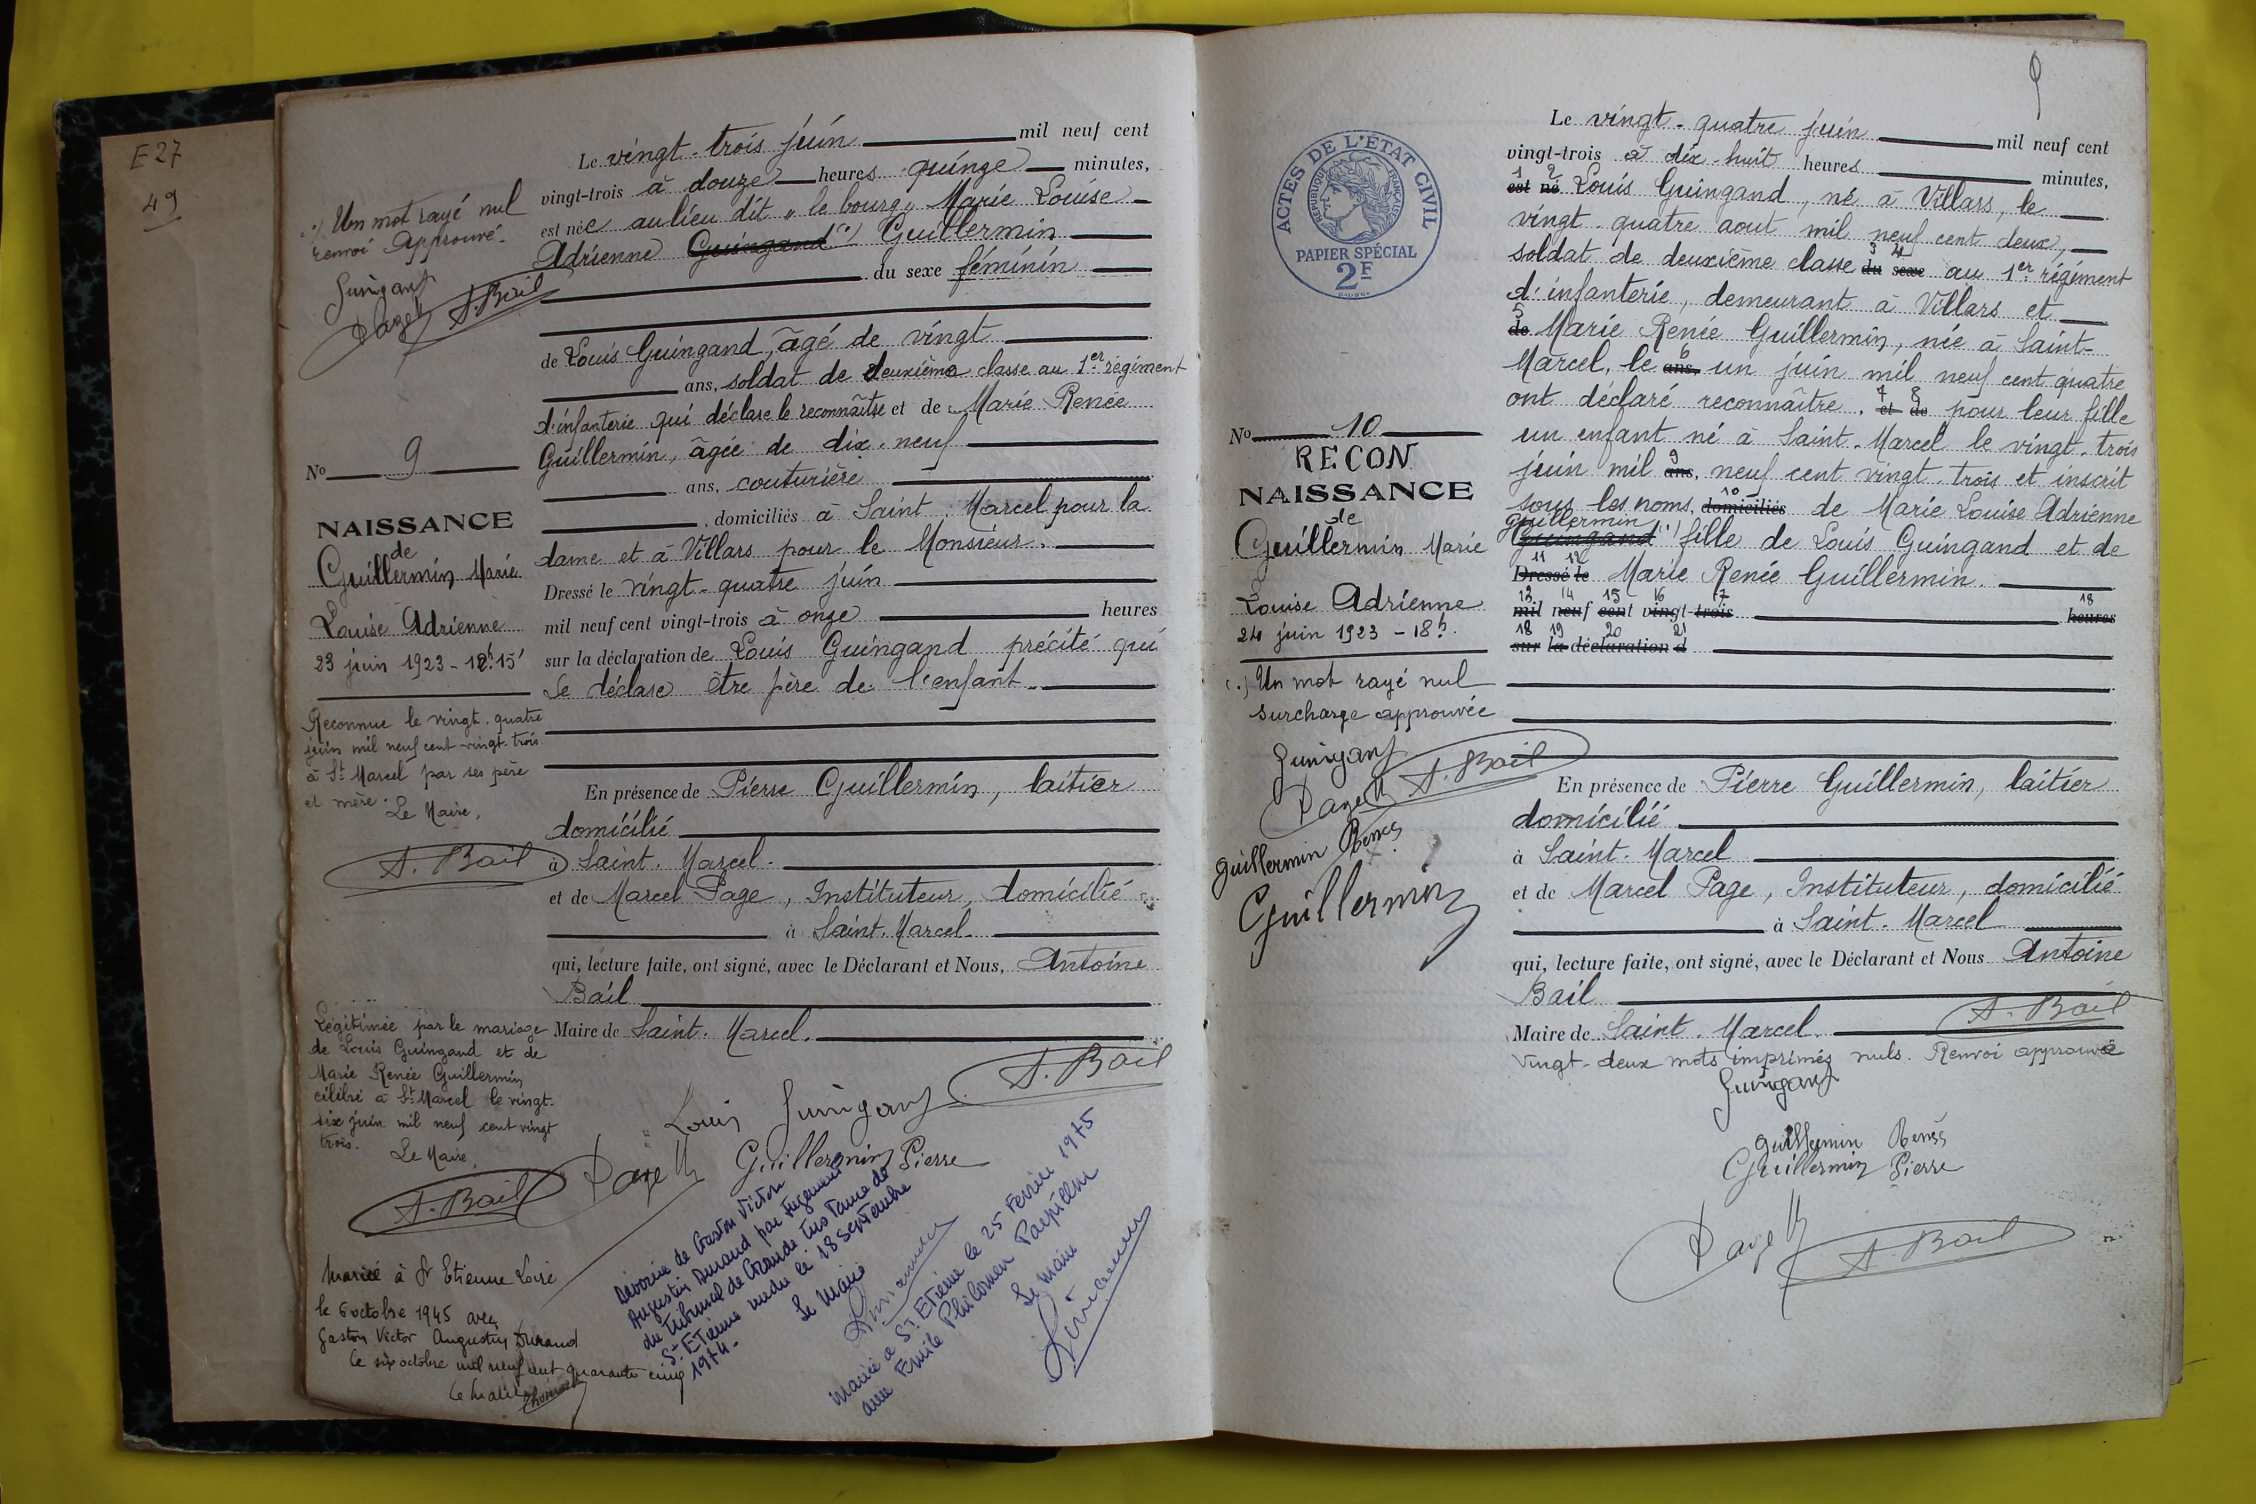 E 27
49
(.) Un mot rayé nul
renvoi approuvé.
Guingand
Page M A. Bail
No 9
NAISSANCE
de
Guillermin Marie
Louise Adrienne
23 juin 1923 - 12h 15'
Reconnue le vingt-quatre
juin mil neuf cent-vingt-trois
à St Marcel par ses père
et mère.
Le Maire,
A. Bail
Légitimée par le mariage
de Louis Guingand et de
Marie Renée Guillermin
célébré à St Marcel le vingt-
six juin mil neuf cent vingt
trois.
Le Maire,
A. Bail
Mariée à St Etienne Loire
le 6 octobre 1945 avec
Gaston Victor Augustin Durand
le six octobre mil neuf cent quarante cinq
Le Maire
Le vingt-trois juin mil neuf cent
vingt-trois à douze heures quinze minutes,
est née au lieu dit "le bourg" Marie Louise
Adrienne Guingand (.) Guillermin
du sexe féminin
de Louis Guingand, âgé de vingt
ans, soldat de deuxième classe au 1er régiment
d'infanterie qui déclare le reconnaître et de Marie Renée
Guillermin, âgée de dix-neuf
ans, couturière
, domiciliés à Saint-Marcel pour la
dame et à Villars pour le Monsieur.
Dressé le vingt-quatre juin
mil neuf cent vingt-trois à onze heures
sur la déclaration de Louis Guingand précité qui
se déclare être père de l'enfant.
En présence de Pierre Guillermin, laitier
domicilié
à Saint-Marcel.
et de Marcel Page, Instituteur, domicilié
à Saint-Marcel.
qui, lecture faite, ont signé, avec le Déclarant et Nous, Antoine
Bail
Maire de Saint-Marcel.
A. Bail
Louis Guingand
Page M Guillermin Pierre
Divorcée de Gaston Victor
Augustin Durand par Jugement
du Tribunal de Grande Instance de
St-Etienne rendu le 18 Septembre
1974.
Le Maire
Mariée à St Etienne le 25 Février 1975
avec Emile Philomen
Le Maire
ACTES DE L'ÉTAT CIVIL
RÉPUBLIQUE FRANÇAISE
PAPIER SPÉCIAL
2F
No 10
RECON
NAISSANCE
de
Guillermin Marie
Louise Adrienne
24 juin 1923 - 18h.
(.) Un mot rayé nul
surcharge approuvée
Guingand
Page M A. Bail
Guillermin Renée
Guillermin
9
Le vingt-quatre juin mil neuf cent
vingt-trois à dix-huit heures minutes,
1 2
est né Louis Guingand, né à Villars, le
vingt-quatre aout mil neuf cent deux,
3 4
soldat de deuxième classe du sexe au 1er régiment
d'infanterie, demeurant à Villars et
5
de Marie Renée Guillermin, née à Saint-
6
Marcel, le ans, un juin mil neuf cent quatre
7 8
ont déclaré reconnaître, et de pour leur fille
un enfant né à Saint-Marcel le vingt-trois
9
juin mil ans, neuf cent vingt-trois et inscrit
10
sous les noms, domiciliés de Marie Louise Adrienne
Guillermin
Guingand (.) fille de Louis Guingand et de
11 12
Dressé le Marie Renée Guillermin.
13 14 15 16 17 18
mil neuf cent vingt-trois heures
18 19 20 21
sur la déclaration d
En présence de Pierre Guillermin, laitier
domicilié
à Saint-Marcel
et de Marcel Page, Instituteur, domicilié
à Saint-Marcel
qui, lecture faite, ont signé, avec le Déclarant et Nous Antoine
Bail
Maire de Saint-Marcel.
A. Bail
Vingt-deux mots imprimés nuls. Renvoi approuvé
Guingand
Guillermin Renée
Guillermin Pierre
Page M
A. Bail